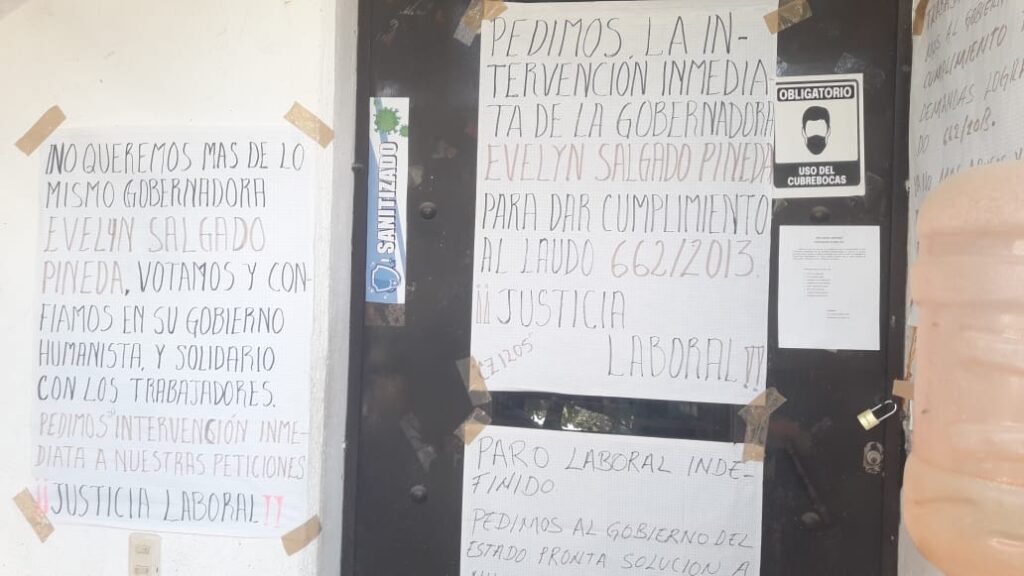 NO QUEREMOS MAS DE LO
MISMO GOBERNADORA
EVELYN SALGADO
PINEDA, VOTAMOS Y CON-
FIAMOS EN SU GOBIERNO
HUMANISTA, Y SOLIDARIO
CON LOS TRABAJADORES.
PEDIMOS INTERVENCIÓN INME-
DIATA A NUESTRAS PETICIONES
¡¡JUSTICIA LABORAL!!
SANITIZADO
PEDIMOS, LA IN-
TERVENCIÓN INMEDIA-
TA DE LA GOBERNADORA
EVELYN SALGADO PINEDA
PARA DAR CUMPLIMIENTO
AL LAUDO 662/2013.
¡¡JUSTICIA
LABORAL!!
PARO LABORAL INDE-
FINIDO
PEDIMOS AL GOBIERNO DEL
ESTADO PRONTA SOLUCION A
OBLIGATORIO
USO DEL
CUBREBOCAS
AL GOBIERN
CUMPLIMIENTO
DEMANDAS LOGRA-
DO 662/2013.